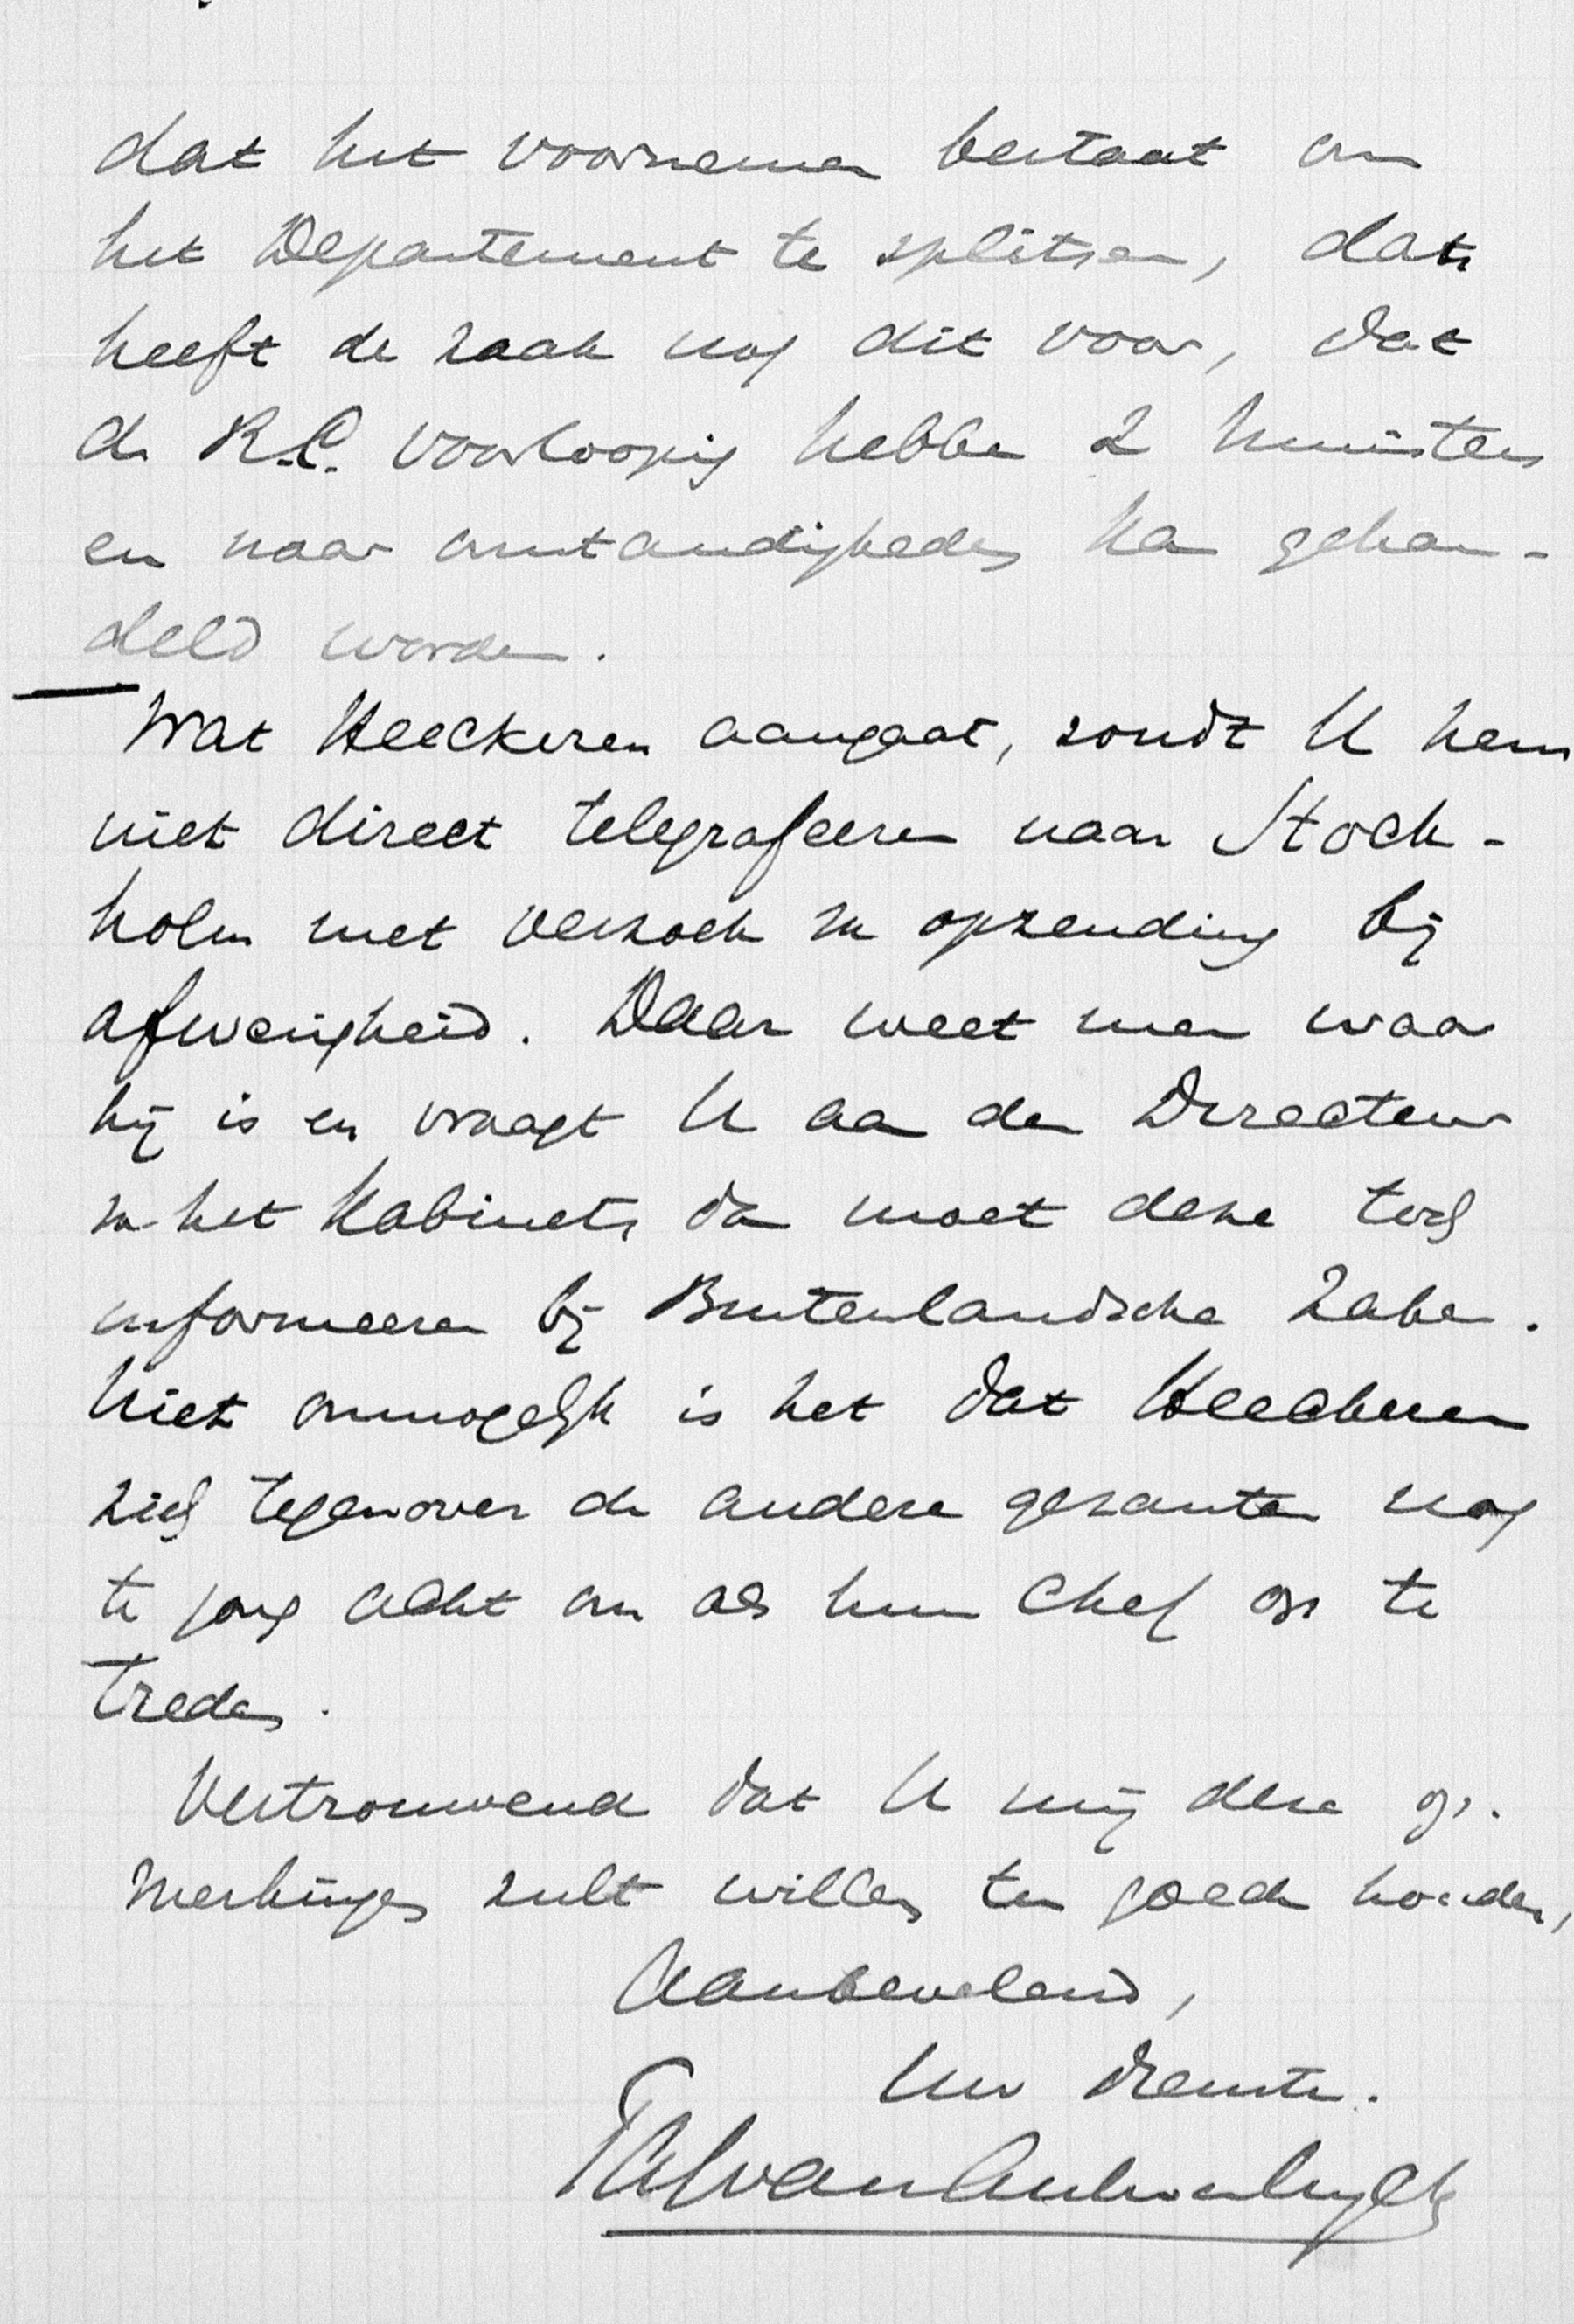 dat het voornemen bestaat om
het Departement te splitsen, dan
heeft de zaak nog dit voor, dat
de R.C. voorloopig hebben 2 ministers
en naar omstandigheden kan gehan-
deld worden.
Wat Heeckeren aangaat, zoudt U hem
niet direct telegrafeeren naar Stock-
holm met verzoek om opzending bij
afwezigheid. Daar weet men waar
hij is en vraagt U aan den Directeur
van het Kabinet, dan moet deze toch
informeeren bij Buitenlandsche Zaken.
Niet onmogelijk is het dat Heeckeren
zich tegenover de andere gezanten nog
te jong acht om als hun Chef op te
treden.
Vertrouwend dat U mij deze op-
merkingen zult willen ten goede houden,
Aanbevelend,
Uw dienstv.